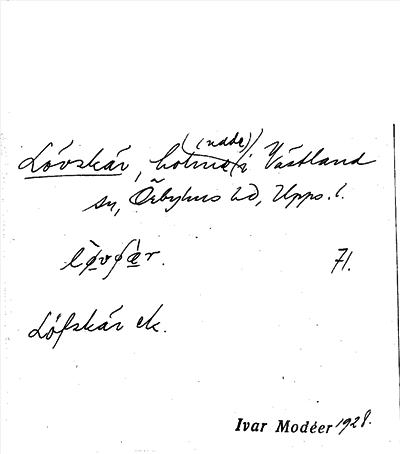 Lövskär, holme (nade) i Västland
sn, Örbyhus hd, Upps. l.
71.
Löfskär ek.
Ivar Modéer 1928.